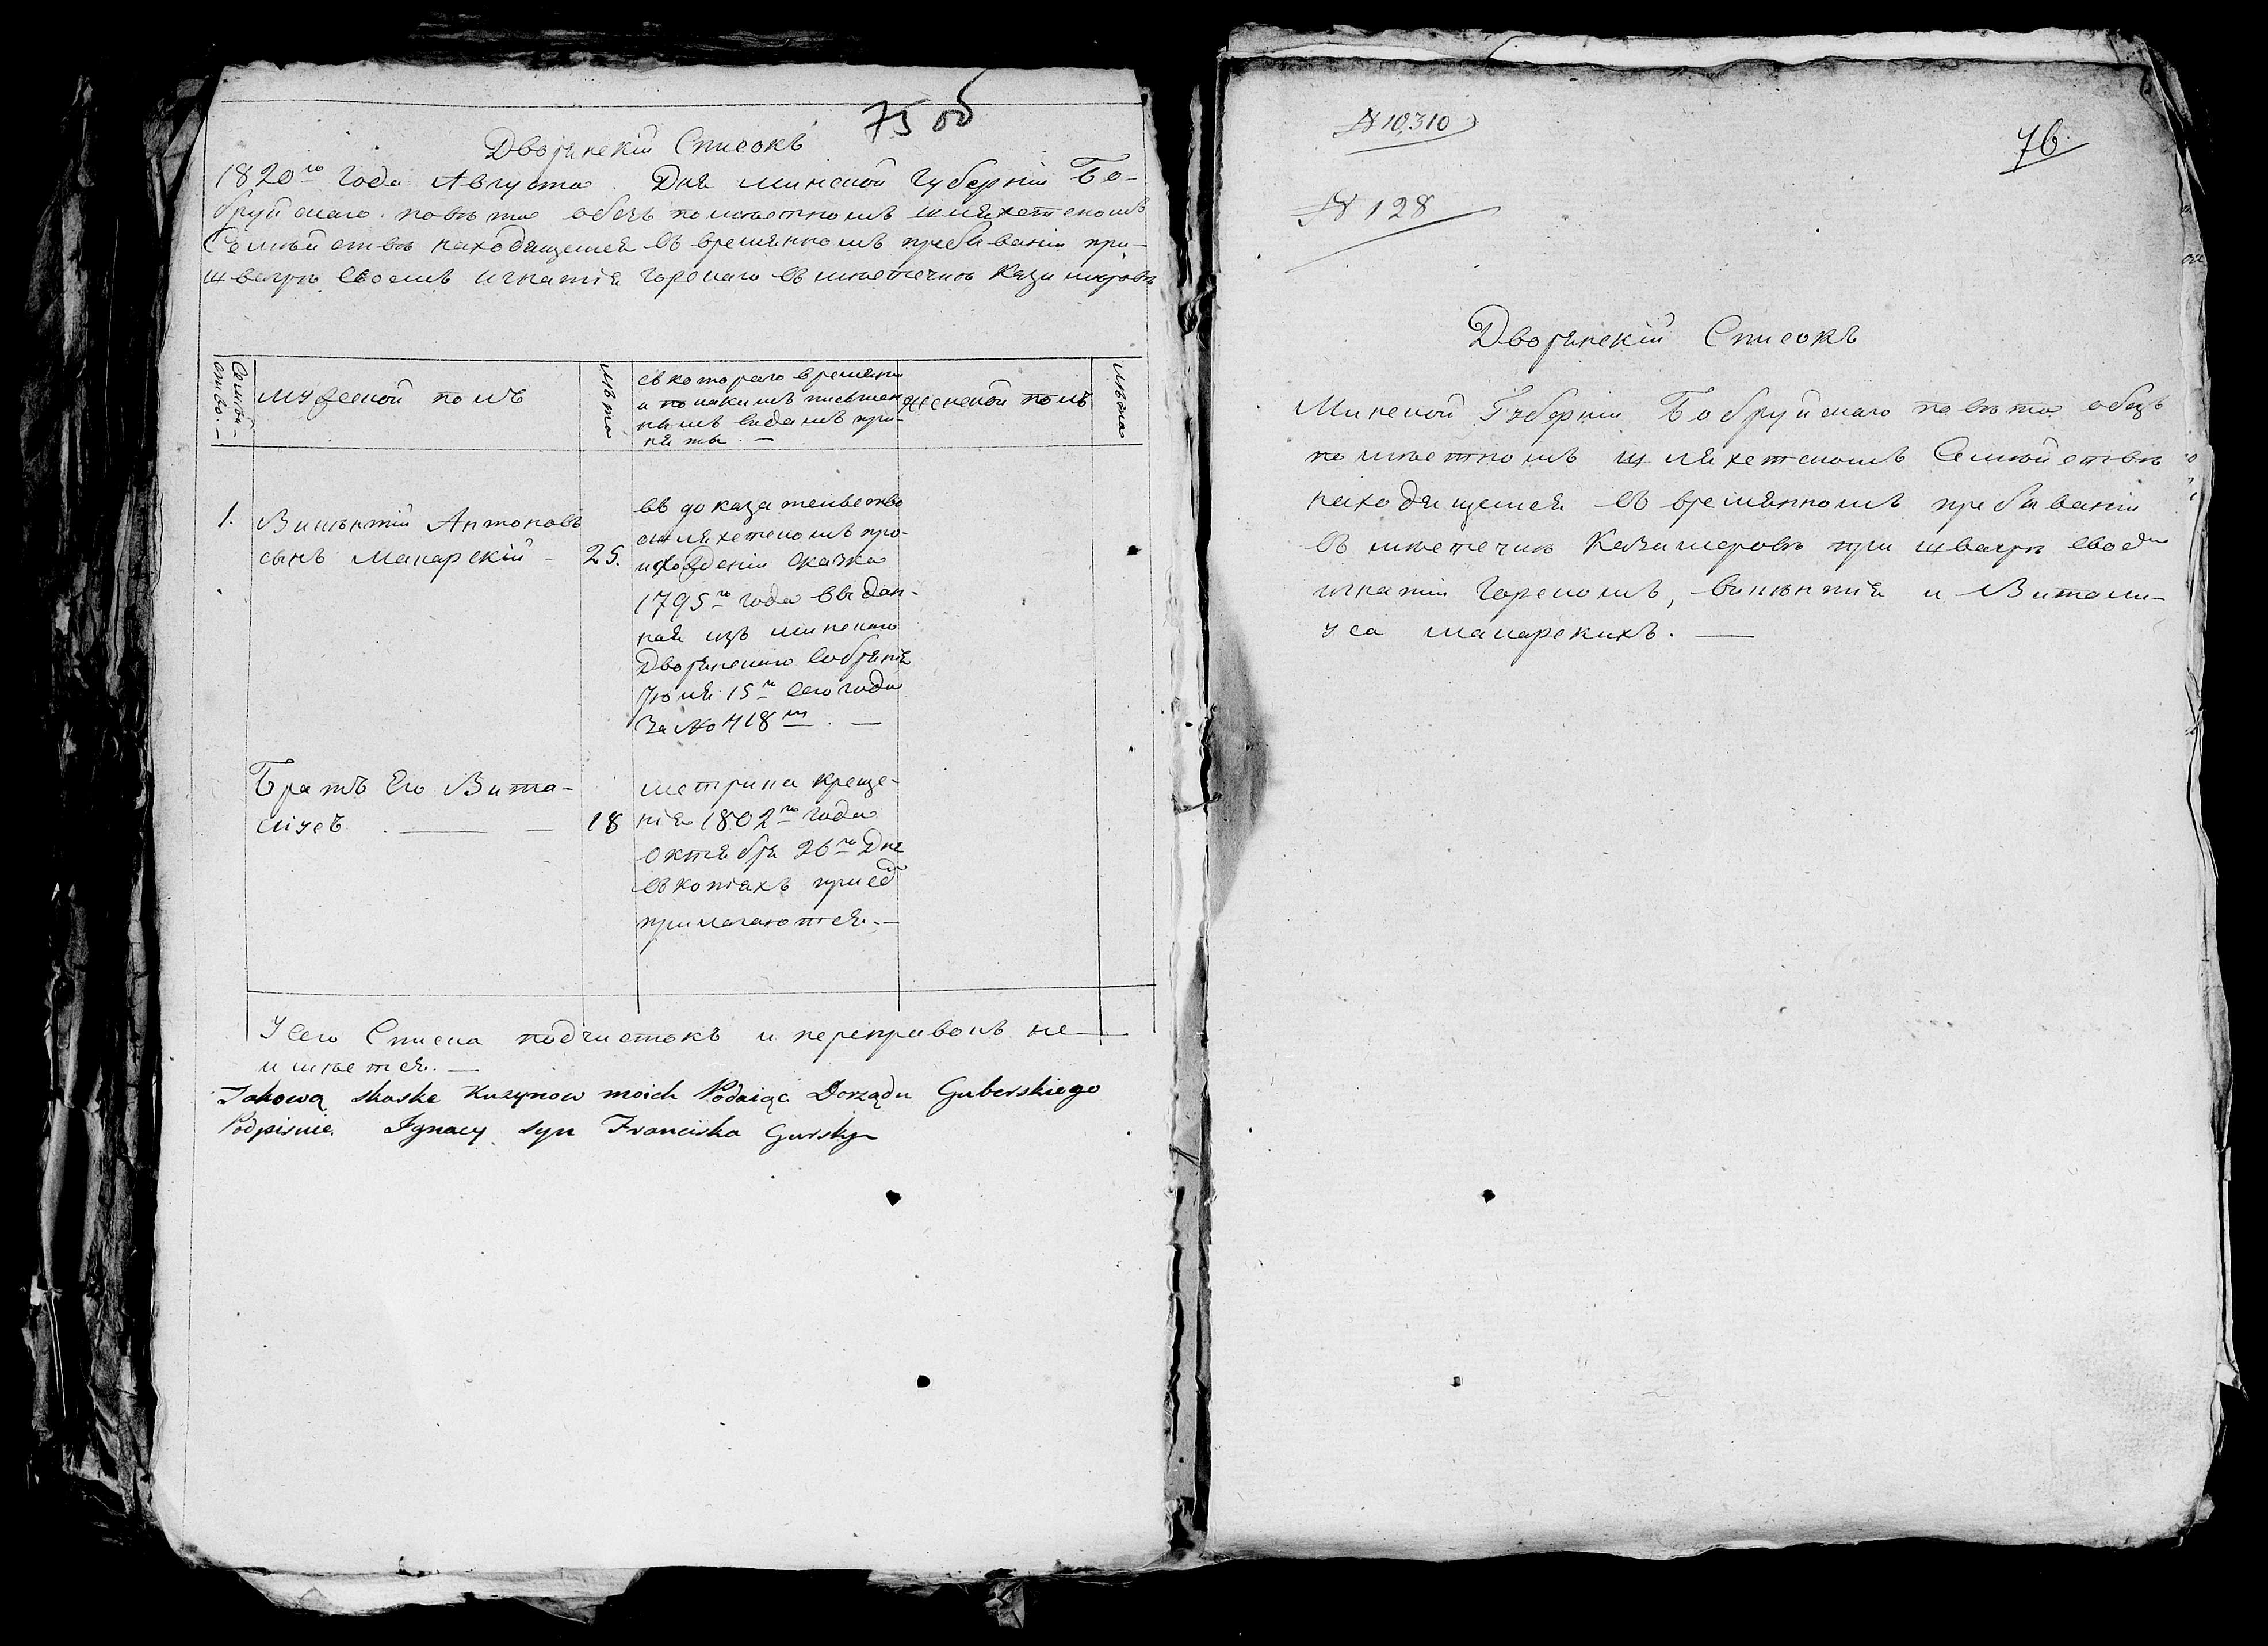 75 об
Дворянскій Списокъ
1820го года Августа Дня Минской губерніи Бо-
бруйскаго повѣта обезъ помѣстномъ шляхетскомъ
Семѣйствѣ находящемся въ времянномъ пребываніи при
швагрѣ своемъ игнатія горскаго въ мѣстечкѣ Казимировѣ
Семѣй-
ство.—
мужеской полъ
лѣта
съ котораго времяни
и по какимъ писмен
нымъ видамъ при-
няты.—
женской полъ
лѣта
1. Винцентій Антоновъ
сынъ Макарскій - 25.
въ доказателство
о шляхетскомъ про-
изхожденіи сказка
1795го года выдан-
ная изъ минскаго
Дворянскаго собранія
Іюля 15го сего года
за No 718м. —
Братъ Его Вита-
ліусъ . — — 18
метрика креще-
нія 1802го года
октября 26го Дня
въ копіяхъ при сѣ
прилагаются.—
У сего Списка подчистокъ и переправокъ не
имѣется.—
Takową skaske Kuzynow moich Podaiąc Dorządu Guberskiego
Podpisuie Ignacy syn Franciska Gurskyi
N 10,310
76
N 128
Дворянскій Списокъ
Минской Губерніи Бобруйскаго повѣта обезъ
помѣстномъ шляхетскомъ Семѣйствѣ
находящемся въ времянномъ пребываніи
въ мѣстечкѣ Казимеровѣ при швагрѣ своемъ
игнатіи Горскомъ, винцентія и Витали-
уса макарскихъ. —